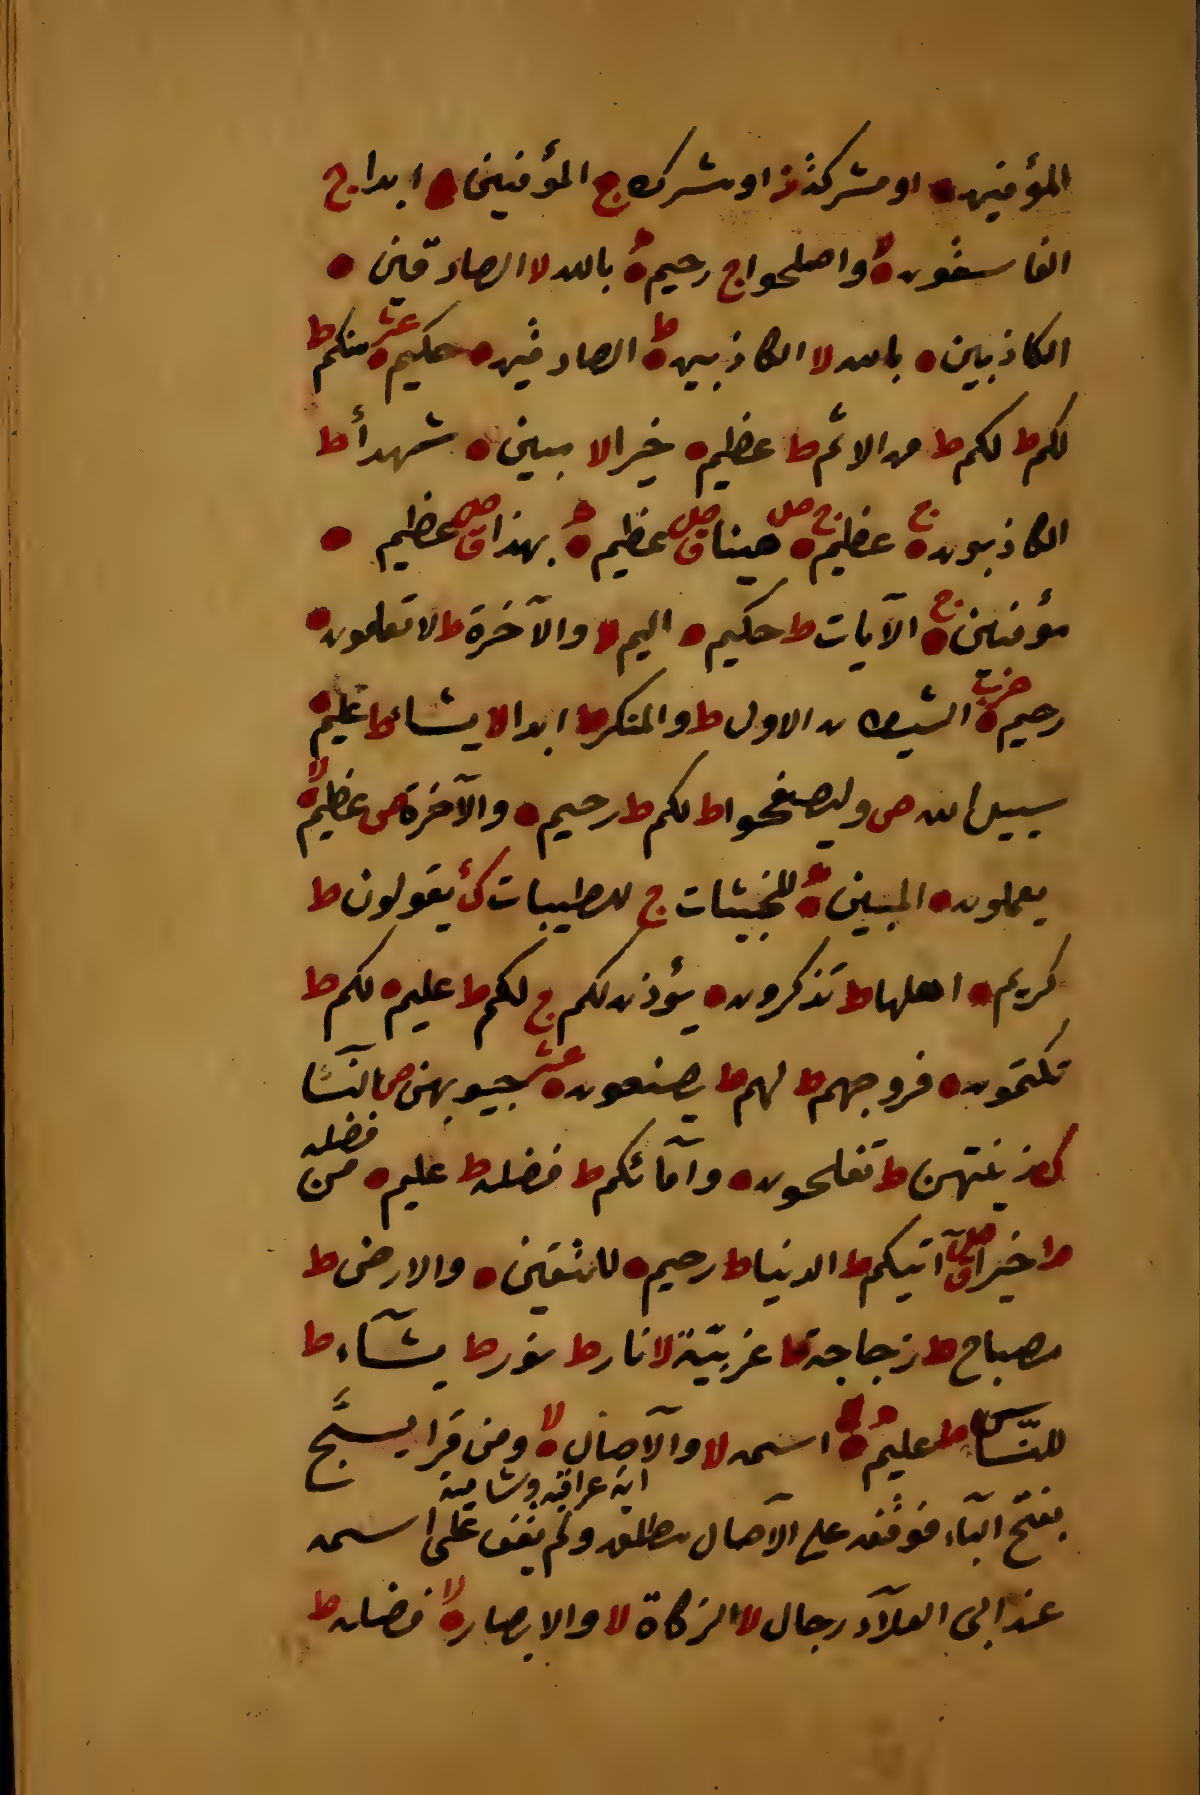 المؤمنين ۰ او مشركة ز او مشرك ج المؤمنين ۰ ابدا ج
الفاسقون ۰ لا واصلحوا ج رحيم ۰ ه بالله لا الصادقين ۰
الكاذبين ۰ بالله لا الكاذبين ۰ ط الصادقين ۰ حكيم ۰ عشر منكم ط
لكم ط لكم ط من الاثم ط عظيم ۰ خيرا لا مبين ۰ شهدأ ط
الكاذبون ۰ ج عظيم ۰ ج صلى هينا ق صلى عظيم ۰ ه بهذا ق صلى عظيم ۰
مؤمنين ۰ ج الآيات ط حكيم ۰ اليم لا والآخرة ط لا تعلمون ۰
رحيم ۰ حزب الشيطان الاول ط والمنكر ط ابدا لا يشاء ط عليم ۰
سبيل الله ص وليصفحوا ط لكم ط رحيم ۰ والآخرة ص عظيم ۰ لا
يعملون ۰ المبين ۰ ه للخبيثات ج للطيبات ك يقولون ط
كريم ۰ اهلها ط تذكرون ۰ يؤذن لكم ج لكم ط عليم ۰ لكم ط
تكتمون ۰ فروجهم ط لهم ط يصنعون ۰ عشر جيوبهن ص النسا
ك زينتهن ط تفلحون ۰ وآمائكم ط فضله ط عليم ۰ من فضله
ط خيرا ق صلى آتيكم ط الدنيا ط رحيم ۰ للمتقين ۰ والارض ط
مصباح ط زجاجة ط غربيّة لا نار ط نور ط يشآء ط
للنّاس ط عليم ۰ ه اسمه لا والآصال ۰ لا ومن قرا يسبَّح
اية عراقية وشامية
بفتح البآء فوقفه على الآصال مطلق ولم يقف على اسمه
عند ابى العلآء رجال لا الزكاة لا والابصار ۰ لا فضله ط